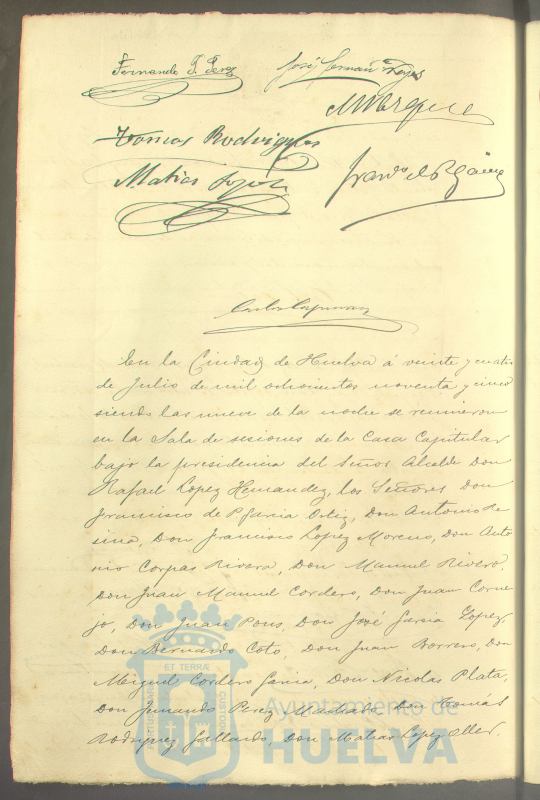 Fernando P. Perez José
Marquez
Tomas Rodriguez
Matias Lopez
Franco. de P. García
Carlos
En la Ciudad de Huelva á veinte y cuatro
de Julio de mil ochocientos noventa y cinco
siendo las nueve de la noche se reunieron
en la Sala de sesiones de la Casa Capitular
bajo la presidencia del Señor Alcalde Don
Rafael Lopez Hernandez, los Señores Don
Francisco de P. García Ortiz, Don Antonio Re
sina, Don Francisco Lopez Moreno, Don Anto
nio Corpas Rivera, Don Manuel Rivero,
Don Juan Manuel Cordero, Don Juan Corne
jo, Don Juan Pons, Don José Garcia Lopez,
Don Bernardo Coto, Don Juan Borrero, Don
Miguel Cordero Garcia, Don Nicolas Plata,
Don Fernando Perez Machado Don Tomás
Rodriguez Gallardo, Don Matias Lopez
ET TERRÆ
Ayuntamiento de
HUELVA